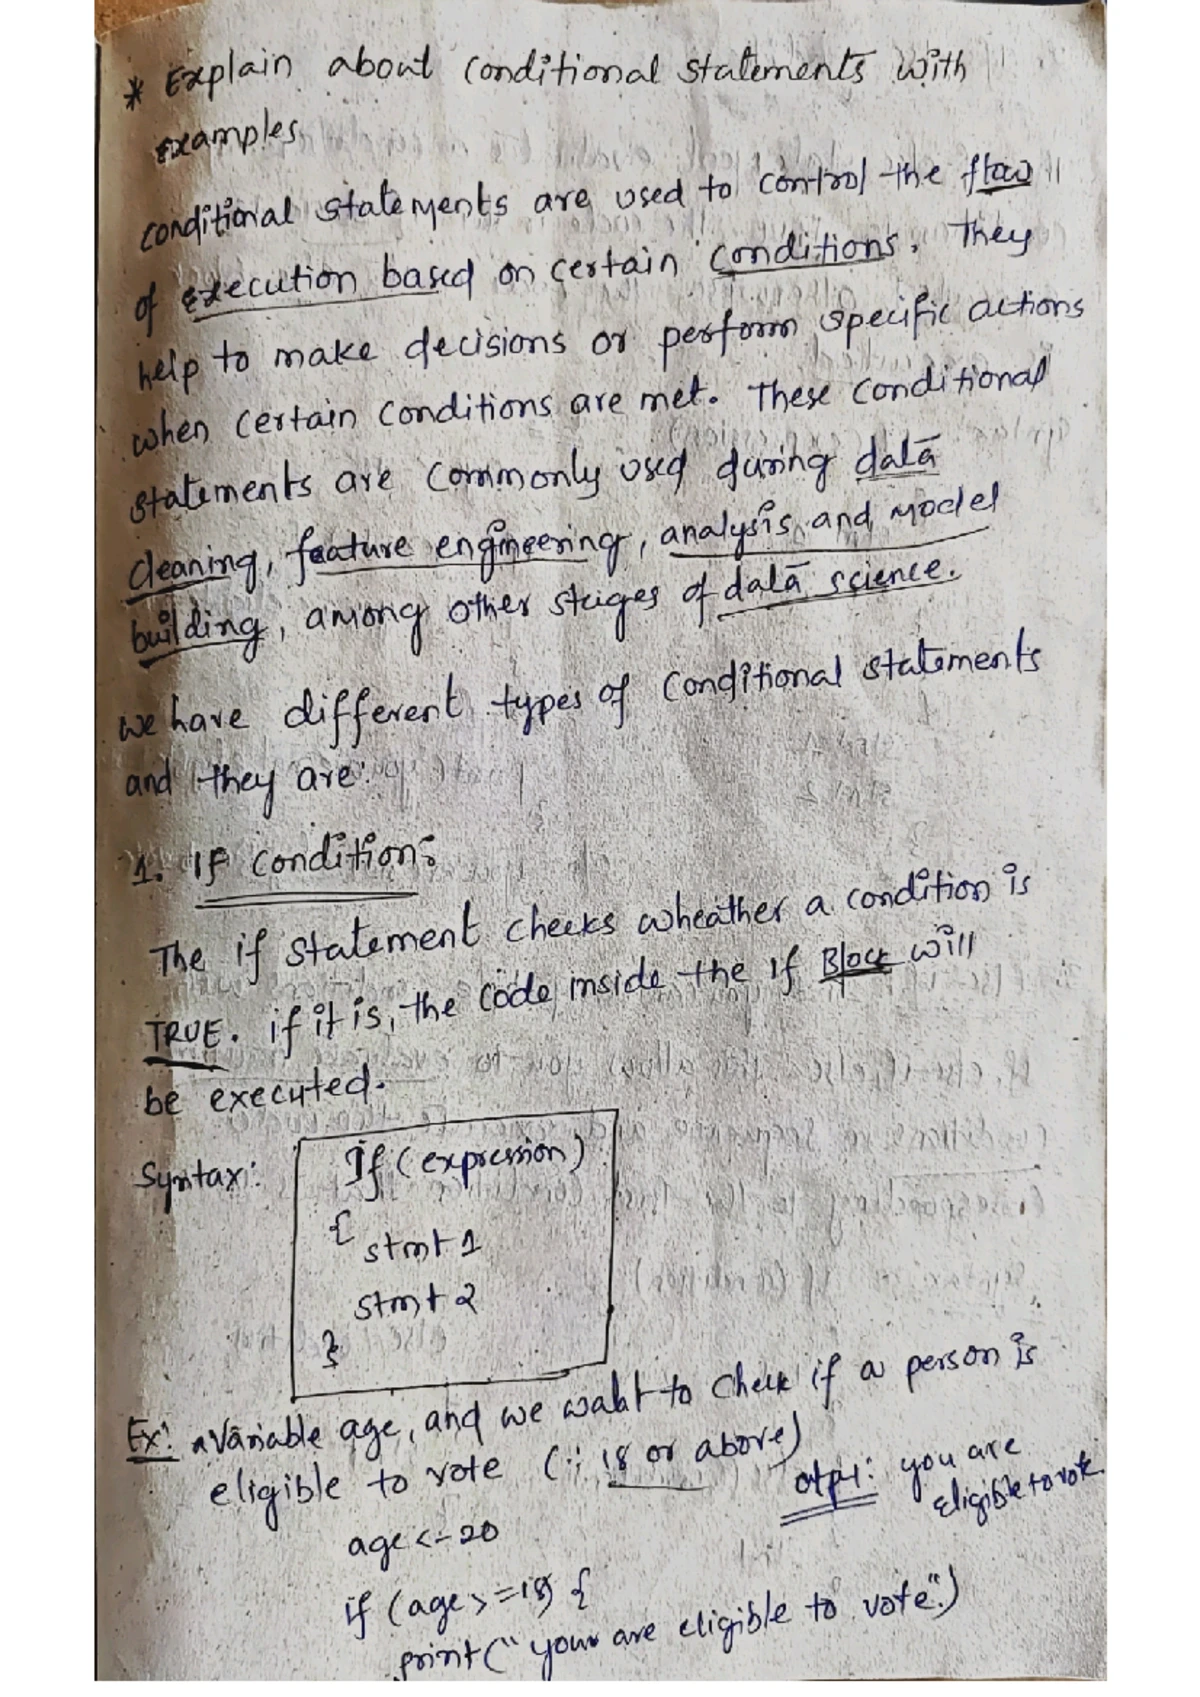 * Explain about conditional statements with
examples
conditional statements are used to control the flow
of execution based on certain conditions. They
help to make decisions or perform specific actions
when certain conditions are met. These conditional
statements are commonly used during data
cleaning, feature engineering, analysis and model
building, among other stages of data science.
we have different types of conditional statements
and they are:
1. If condition:
The if statement checks wheather a condition is
TRUE. if it is, the code inside the if Block will
be executed.
Syntax: If (expression)
{
stmt 1
stmt 2
}
Ex: a variable age, and we want to check if a person is
eligible to vote (i; 18 or above)
age <- 20
otpt: you are
eligible to vote.
if (age >= 18) {
print("your are eligible to vote")